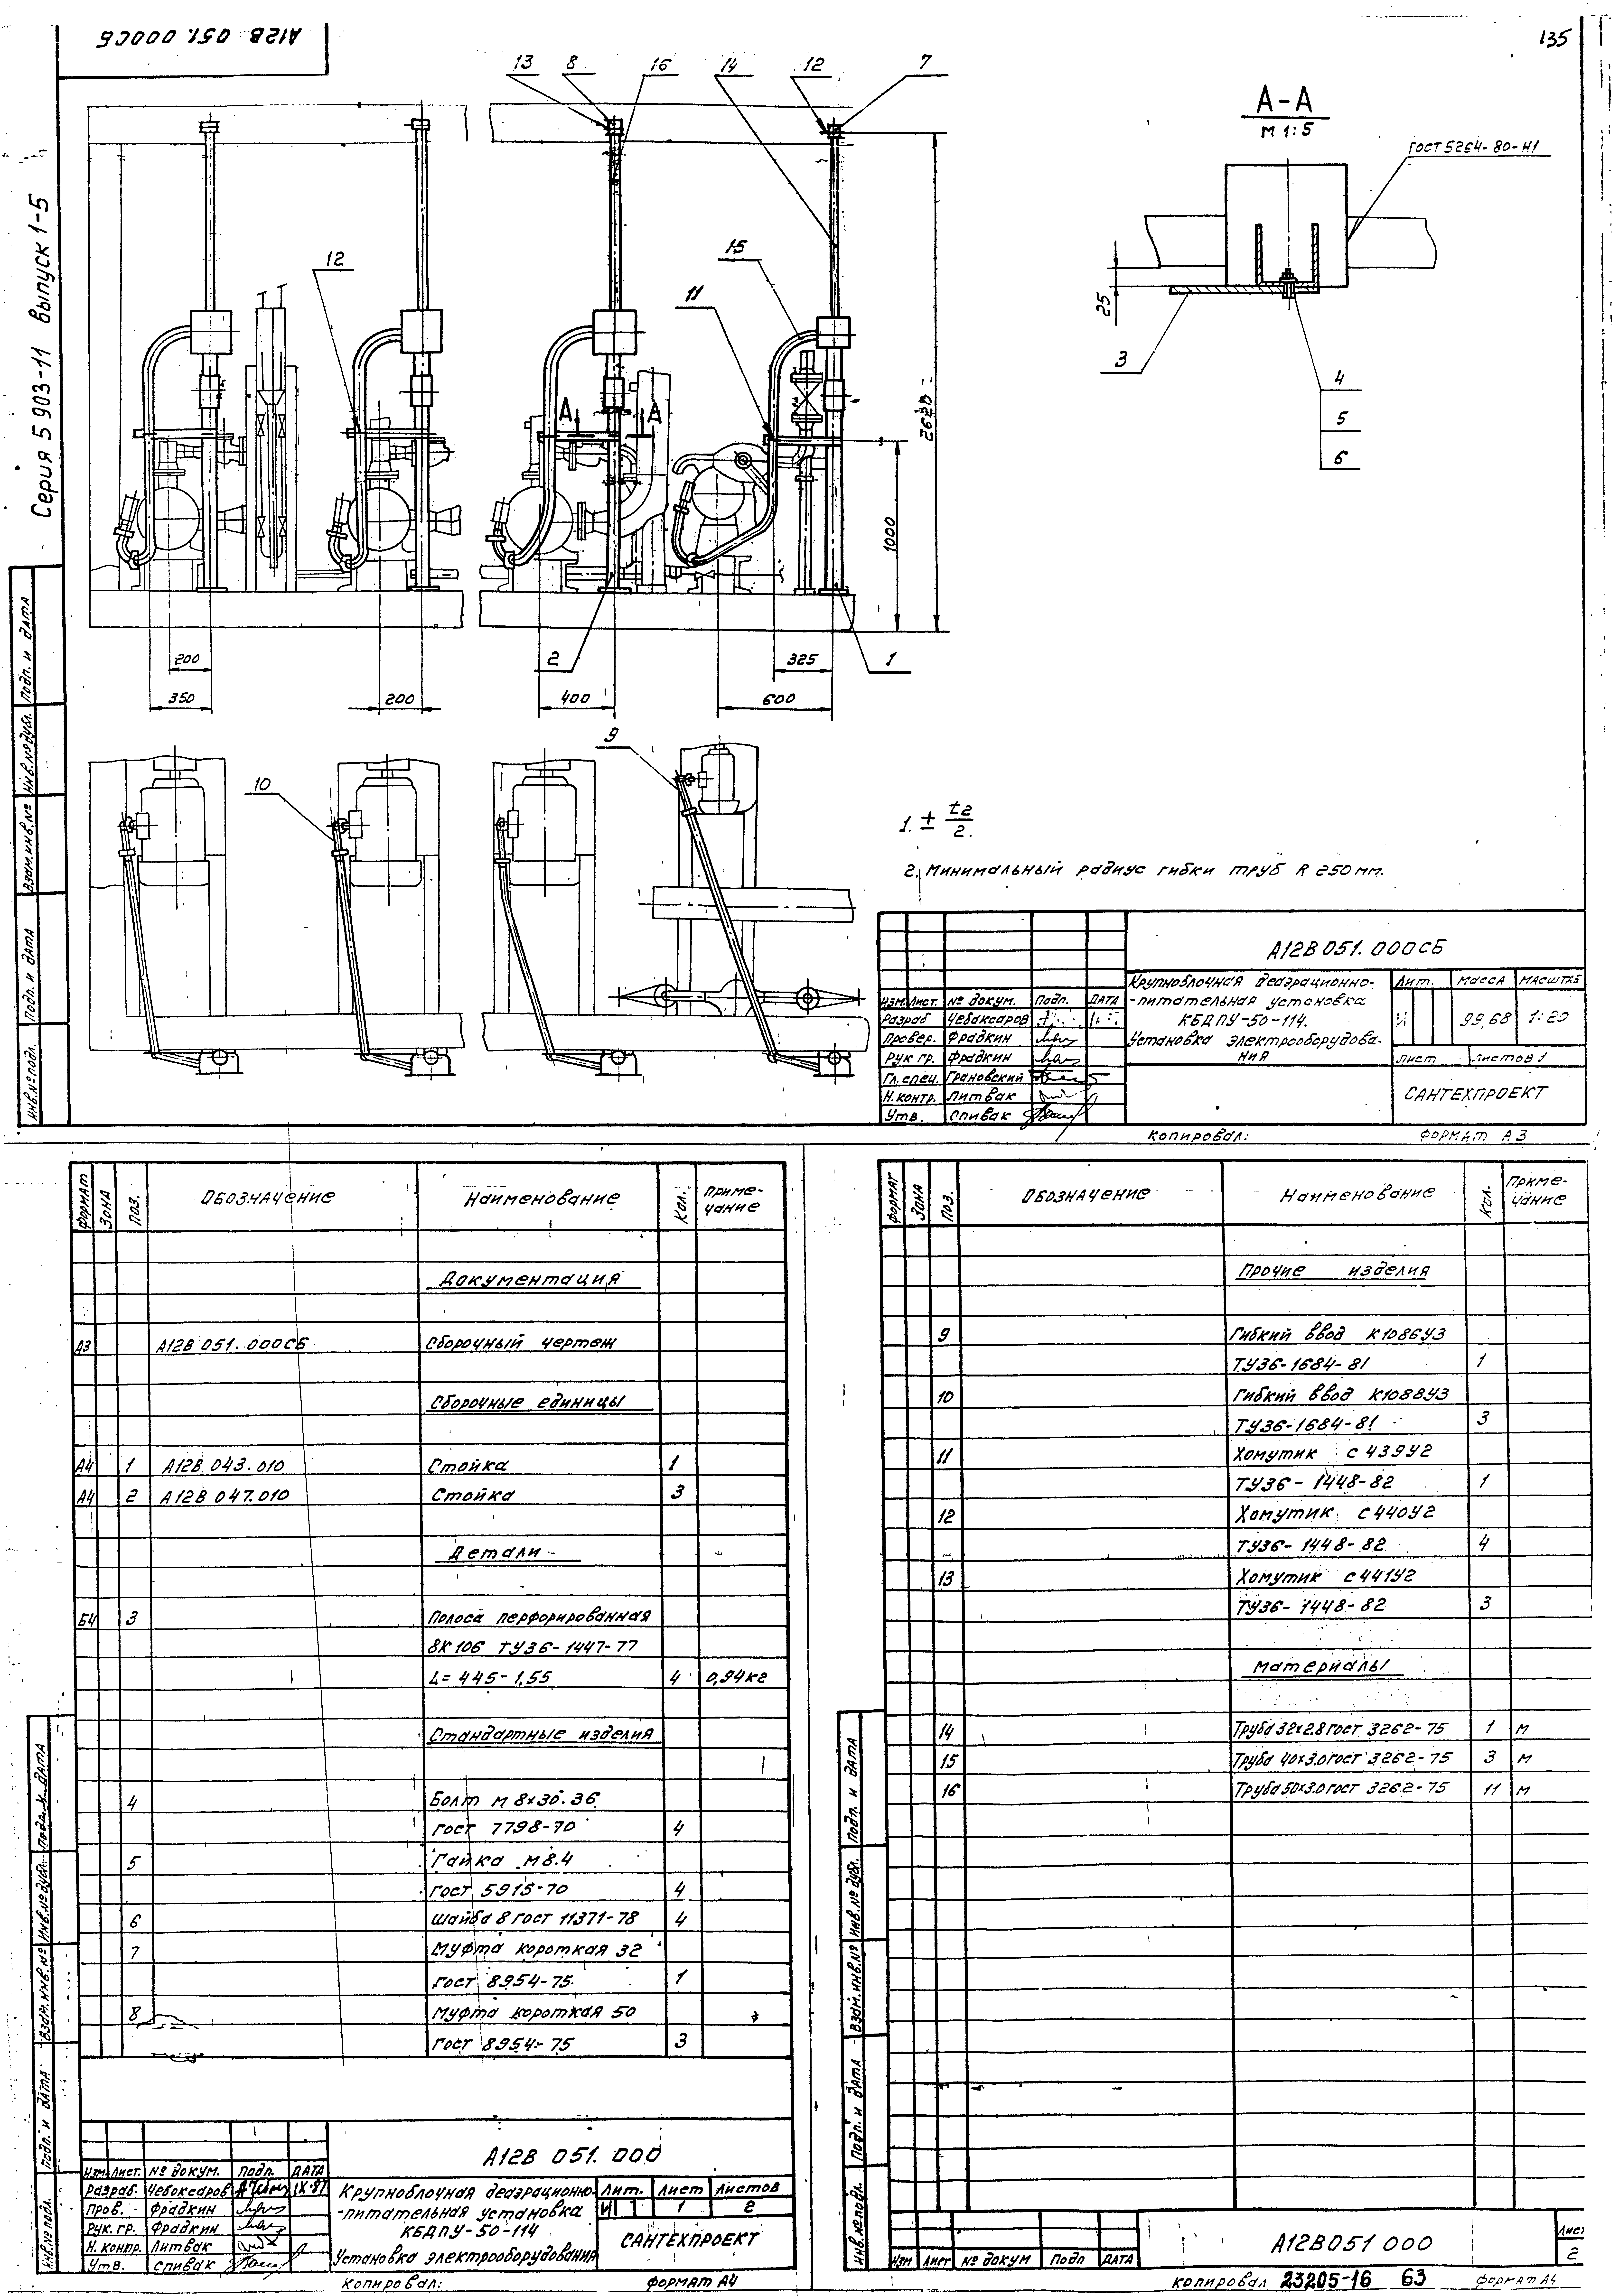 А12В 051.000СБ
135
Серия 5 903-11 выпуск 1-5
13 8 16 14 12 7
А-А
М 1:5
ГОСТ 5264-80-Н1
12
15
11
25
3
4
5
6
А А
2628
1000
2
1
200
350
200
400
325
600
9
10
1. ± t2/2.
2. Минимальный радиус гибки труб R 250 мм.
Инв.№ подл. Подп. и дата Взам.инв.№ Инв.№ дубл. Подп. и дата
А12В 051.000СБ
Крупноблочная деаэрационно-
-питательная установка
КБДПУ-50-114.
Установка электрооборудова-
ния
Лит. Масса Масштаб
И 99,68 1:20
Лист Листов 1
САНТЕХПРОЕКТ
Изм. Лист. № докум. Подп. Дата
Разраб Чебаксаров
Провер. Фрадкин
Рук гр. Фрадкин
Гл. спец. Грановский
Н.контр. Литвак
Утв. Спивак
Копировал: Формат А3
Формат Зона Поз. Обозначение Наименование Кол. Приме-
чание
Документация
А3 А12В 051.000СБ Сборочный чертеж
Сборочные единицы
А4 1 А12В 043.010 Стойка 1
А4 2 А12В 047.010 Стойка 3
Детали
Б4 3 Полоса перфорированная
8К 106 ТУ36-1447-77
L=445-1,55 4 0,94кг
Стандартные изделия
4 Болт М 8х30.36
ГОСТ 7798-70 4
5 Гайка М8.4
ГОСТ 5915-70 4
6 Шайба 8 ГОСТ 11371-78 4
7 Муфта короткая 32
ГОСТ 8954-75 1
8 Муфта короткая 50
ГОСТ 8954-75 3
Инв.№ подл. Подп. и дата Взам.инв.№ Инв.№ дубл. Подп. и дата
А12В 051.000
Изм. Лист. № докум. Подп. Дата
Разраб. Чебоксаров IX-87
Пров. Фрадкин
Рук. гр. Фрадкин
Н. контр. Литвак
Утв. Спивак
Крупноблочная деаэрационно-
-питательная установка
КБДПУ-50-114
Установка электрооборудования
Лит. Лист Листов
И 1 2
САНТЕХПРОЕКТ
Копировал: Формат А4
Формат Зона Поз. Обозначение Наименование Кол. Приме-
чание
Прочие изделия
9 Гибкий ввод К1086У3
ТУ36-1684-81 1
10 Гибкий ввод К1088У3
ТУ36-1684-81 3
11 Хомутик С439У2
ТУ36-1448-82 1
12 Хомутик С440У2
ТУ36-1448-82 4
13 Хомутик С441У2
ТУ36-1448-82 3
Материалы
14 Труба 32х2.8 ГОСТ 3262-75 1 м
15 Труба 40х3.0 ГОСТ 3262-75 3 м
16 Труба 50х3.0 ГОСТ 3262-75 11 м
Инв.№ подл. Подп. и дата Взам.инв.№ Инв.№ дубл. Подп. и дата
Изм Лист № докум Подп Дата
А12В051 000
Лис
2
Копировал 23205-16 63 Формат А4